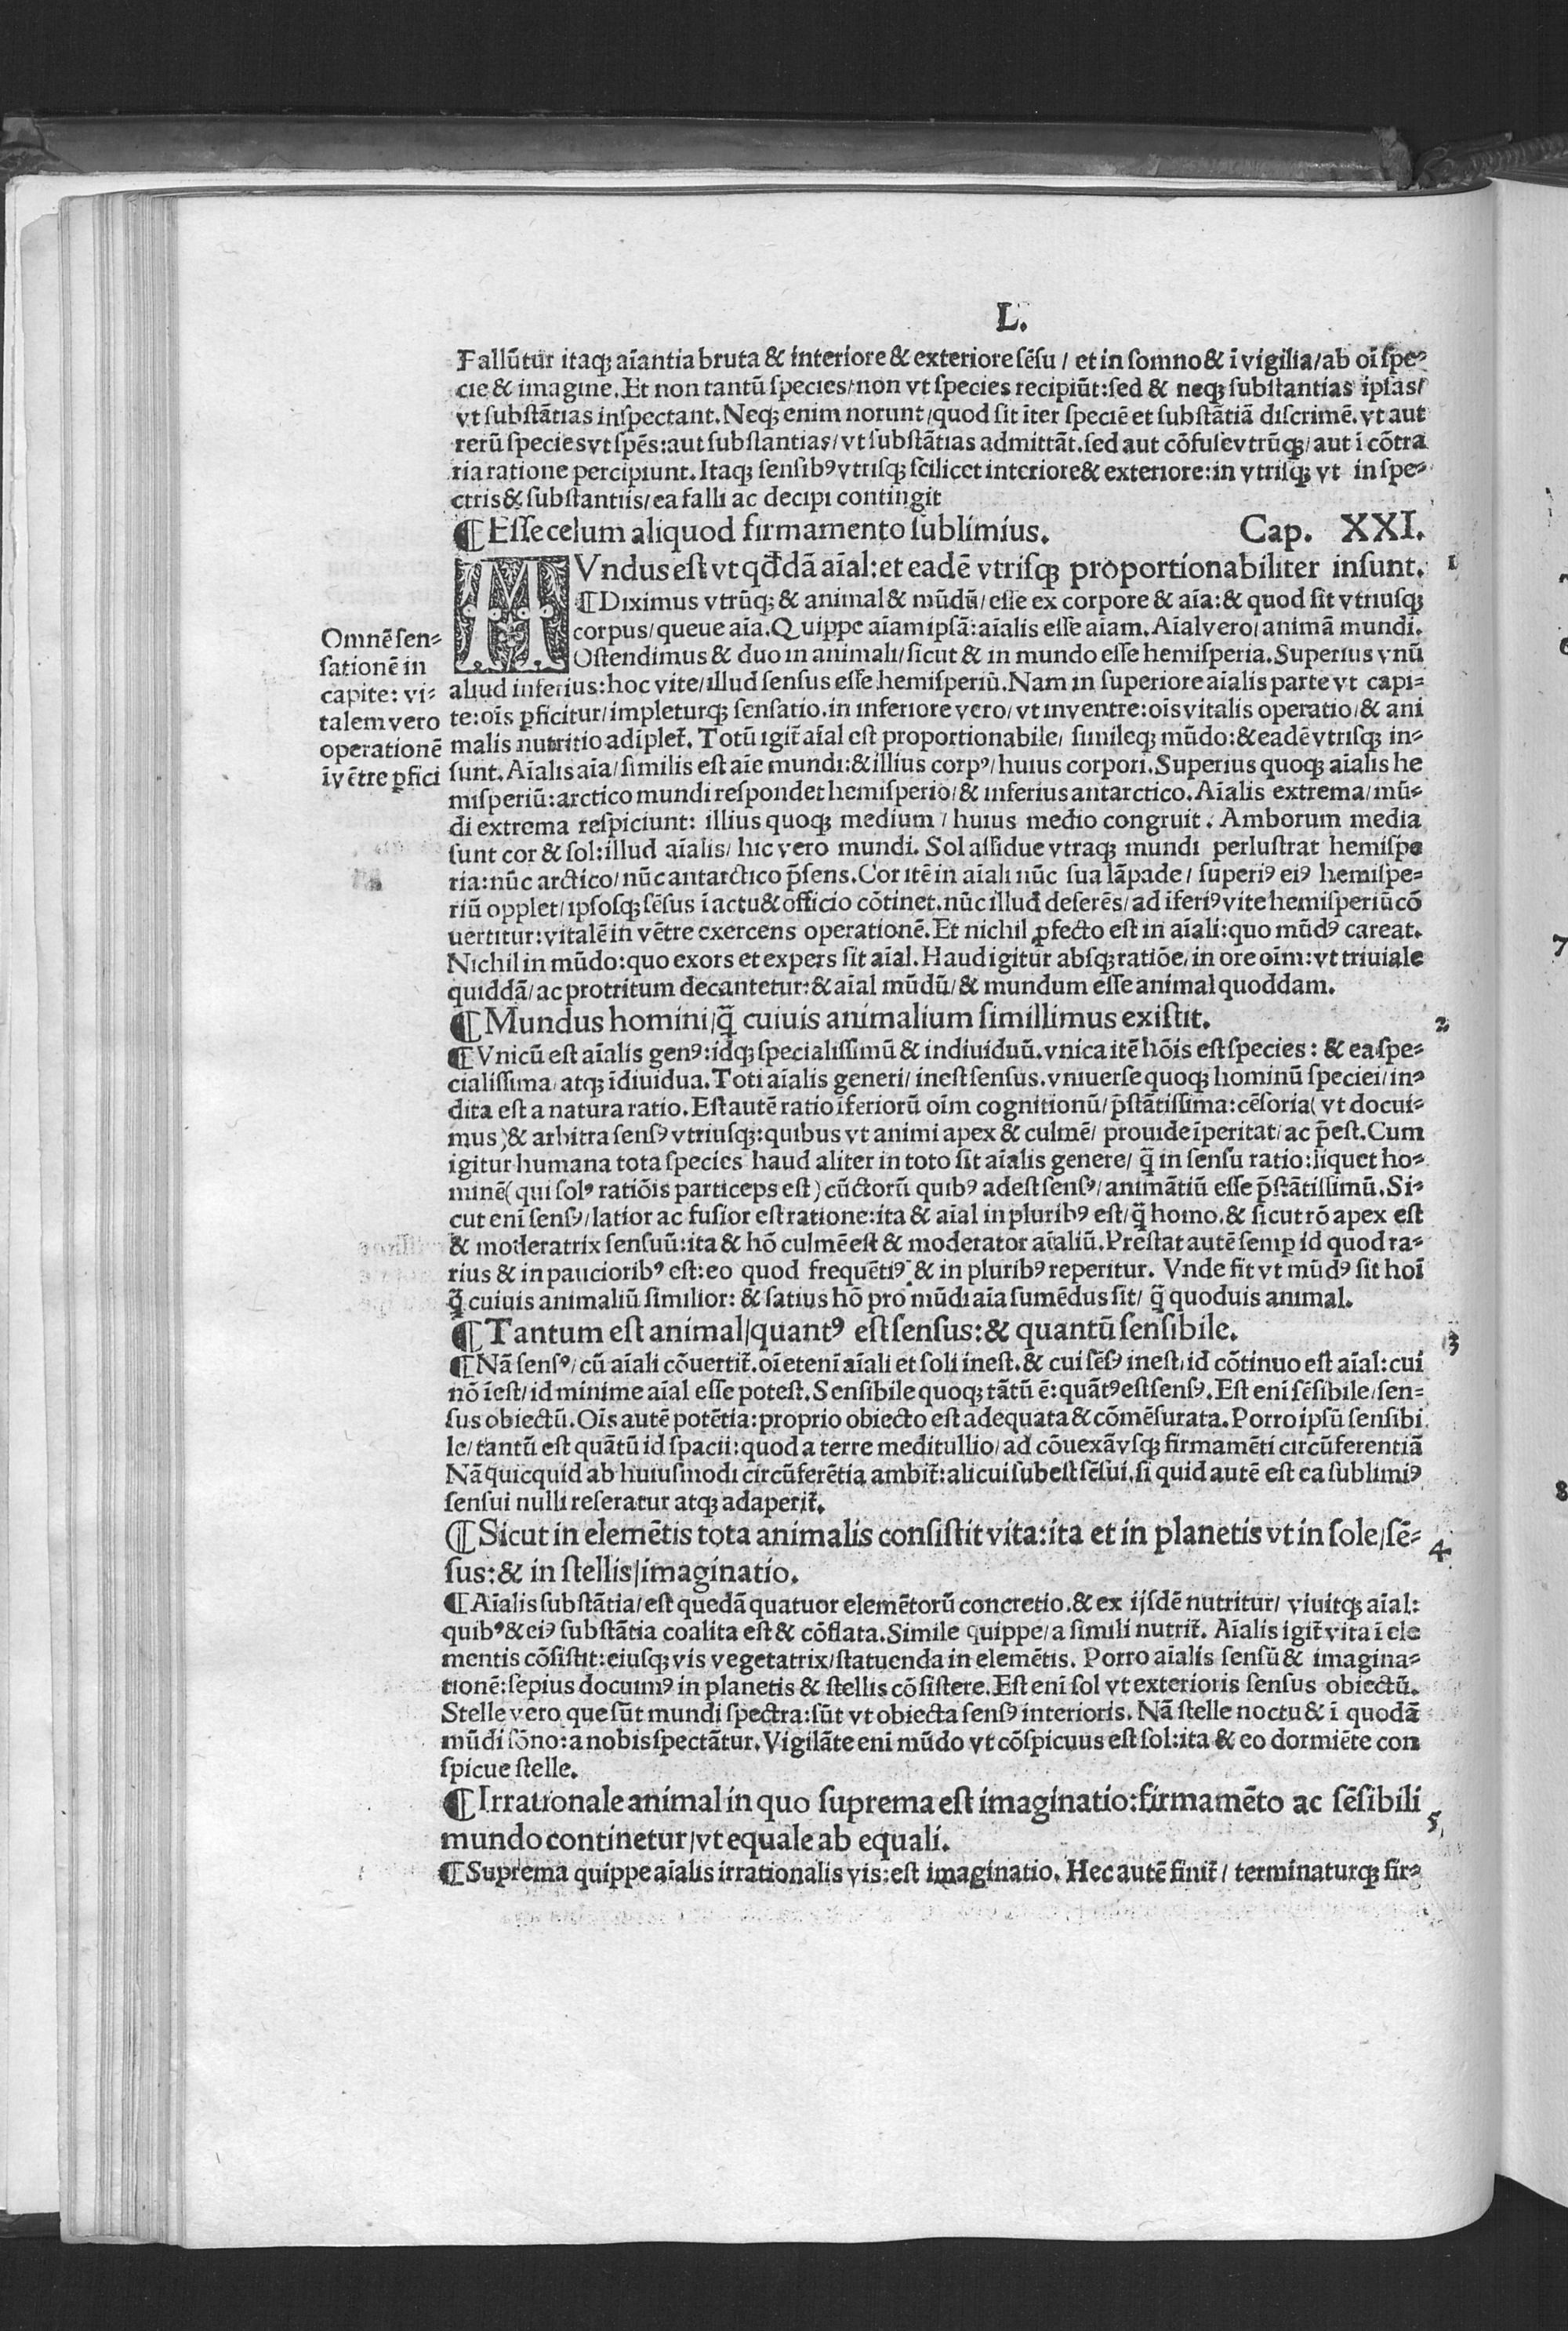 L.
Fallūtur itaqꝫ aīantia bruta & interiore & exteriore sēsu / et in somno & ī vigilia / ab oī spe⸗
cie & imagine. Et non tantū species / non vt species recipiūt: sed & neqꝫ substantias ipsas /
vt substātias inspectant. Neqꝫ enim norunt / quod sit īter speciē et substātiā discrimē. vt aut
rerū species vt spēs: aut substantias / vt substātias admittāt. sed aut cōfuse vtrūqꝫ / aut ī cōtra
ria ratione percipiunt. Itaqꝫ sensibꝰ vtrisqꝫ scilicet interiore & exteriore: in vtrisqꝫ vt in spe⸗
ctris & substantiis / ea falli ac decipi contingit
¶ Esse celum aliquod firmamento sublimius. Cap. XXI.
MVndus est vt qđdā aīal: et eadē vtrisqꝫ proportionabiliter insunt. 1
¶ Diximus vtrūqꝫ & animal & mūdū / esse ex corpore & aīa: & quod sit vtriusqꝫ
corpus / queue aīa. Quippe aīam ipsā: aīalis esse aīam. Aīal vero / animā mundi.
Ostendimus & duo in animali / sicut & in mundo esse hemisperia. Superius vnū
aliud inferius: hoc vite / illud sensus esse hemisperiū. Nam in superiore aīalis parte vt capi⸗
te: oīs ꝑficitur / impleturqꝫ sensatio. in inferiore vero / vt in ventre: oīs vitalis operatio / & ani
malis nutritio adīplet̄. Totū igit̄ aīal est proportionabile / simileqꝫ mūdo: & eadē vtrisqꝫ in⸗
sunt. Aīalis aīa / similis est aīe mundi: & illius corpꝰ / huius corpori. Superius quoqꝫ aīalis he
misperiū: arctico mundi respondet hemisperio / & inferius antarctico. Aīalis extrema / mū⸗
di extrema respiciunt: illius quoqꝫ medium / huius medio congruit. Amborum media
sunt cor & sol: illud aīalis / hic vero mundi. Sol assidue vtraqꝫ mundi perlustrat hemispe
ria: nūc arctico / nūc antarctico p̄sens. Cor itē in aīali nūc sua lāpade / superiꝰ eiꝰ hemispe⸗
riū opplet / ipsosqꝫ sēsus ī actu & officio cōtinet. nūc illud deserēs / ad īferiꝰ vite hemisperiū cō
uertitur: vitalē in vētre exercens operationē. Et nichil ꝓfecto est in aīali: quo mūdꝰ careat.
Nichil in mūdo: quo exors et expers sit aīal. Haud igitur absqꝫ ratiōe / in ore oīm: vt triuiale
quiddā / ac protritum decantetur: & aīal mūdū / & mundum esse animal quoddam.
Omnē sen⸗
sationē in
capite: vi⸗
talem vero
operationē
ī vētre ꝑfici
¶ Mundus homini / q̄ cuiuis animalium simillimus existit. 2
¶ Vnicū est aīalis genꝰ: idqꝫ specialissimū & indiuiduū. vnica itē hōis est species: & ea spe⸗
cialissima / atqꝫ īdiuidua. Toti aīalis generi / inest sensus. vniuerse quoqꝫ hominū speciei / in⸗
dita est a natura ratio. Est autē ratio īferiorū oīm cognitionū / p̄stātissima: cēsoria ( vt docui⸗
mus ) & arbitra sensꝰ vtriusqꝫ: quibus vt animi apex & culmē / prouide īperitat / ac p̄est. Cum
igitur humana tota species haud aliter in toto sit aīalis genere / q̄ in sensu ratio: liquet ho⸗
minē ( qui solꝰ ratiōis particeps est ) cūctorū quibꝰ adest sensꝰ / animātiū esse p̄stātissimū. Si⸗
cut enī sensꝰ / latior ac fusior est ratione: ita & aīal in pluribꝰ est / q̄ homo. & sicut rō apex est
& moderatrix sensuū: ita & hō culmē est & moderator aīaliū. Prestat autē semꝑ id quod ra⸗
rius & in pauciorībꝰ est: eo quod frequētiꝰ & in pluribꝰ reperitur. Vnde fit vt mūdꝰ sit hoī
q̄ cuiuis animaliū similior: & satius hō pro mūdi aīa sumēdus sit / q̄ quoduis animal.
¶ Tantum est animal / quantꝰ est sensus: & quantū sensibile. 3
¶ Nā sensꝰ / cū aīali cōuertit̄. oī etenī aīali et soli inest. & cui sēsꝰ inest / id cōtinuo est aīal: cui
nō īest / id minime aīal esse potest. Sensibile quoqꝫ tātū ē: quātꝰ est sensꝰ. Est enī sēsibile / sen⸗
sus obiectū. Oīs autē potētia: proprio obiecto est adequata & cōmēsurata. Porro ipsū sensibi
le / tantū est quātū id spacii: quod a terre meditullio / ad cōuexā vsqꝫ firmamēti circūferentiā
Nā quicquid ab huiusmodi circūferētia ambit̄: alicui subest sēsui. si quid autē est ea sublimiꝰ
sensui nulli reseratur atqꝫ adaperit̄.
¶ Sicut in elemētis tota animalis consistit vita: ita et in planetis vt in sole / sē⸗ 4
sus: & in stellis / imaginatio.
¶ Aīalis substātia / est quedā quatuor elemētorū concretio. & ex ijsdē nutritur / viuitqꝫ aīal:
quibꝰ & eiꝰ substātia coalita est & cōflata. Simile quippe / a simili nutrit̄. Aīalis igit̄ vita ī ele
mentis cōsistit: eiusqꝫ vis vegetatrix / statuenda in elemētis. Porro aīalis sensū & imagina⸗
tionē: sepius docuimꝰ in planetis & stellis cōsistere. Est enī sol vt exterioris sensus obiectū.
Stelle vero que sūt mundi spectra: sūt vt obiecta sensꝰ interioris. Nā stelle noctu & ī quodā
mūdi sōno: a nobis spectātur. Vigilāte enī mūdo vt cōspicuus est sol: ita & eo dormiēte con
spicue stelle.
¶ Irrationale animal in quo suprema est imaginatio: firmamēto ac sēsibili 5
mundo continetur / vt equale ab equali.
¶ Suprema quippe aīalis irrationalis vis: est imaginatio. Hec autē finit̄ / terminaturqꝫ fir⸗
7
8